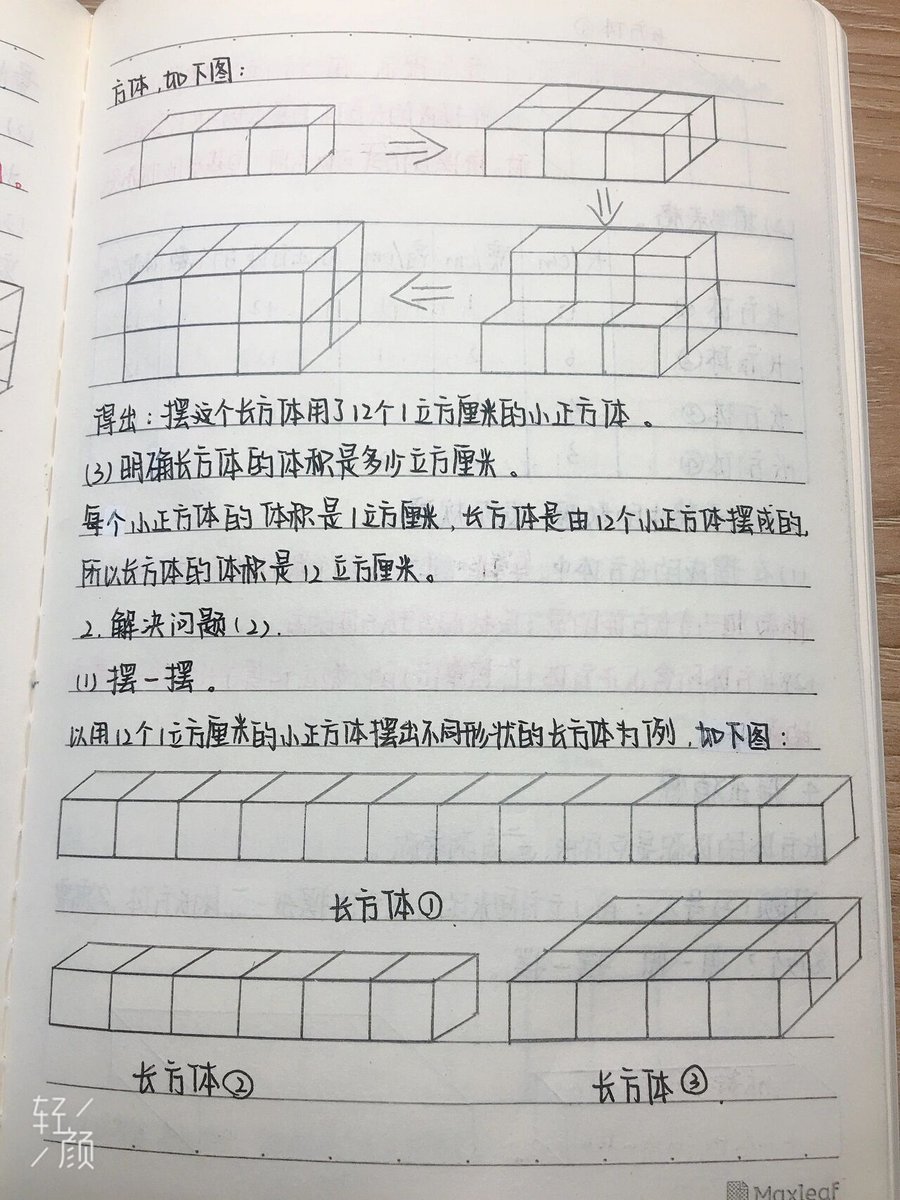 方体，如下图：
得出：摆这个长方体用了12个1立方厘米的小正方体。
(3)明确长方体的体积是多少立方厘米。
每个小正方体的体积是1立方厘米，长方体是由12个小正方体摆成的，
所以长方体的体积是12立方厘米。
2.解决问题(2).
(1)摆一摆。
以用12个1立方厘米的小正方体摆出不同形状的长方体为例，如下图：
长方体①
长方体②
长方体③
轻颜
Maxleaf